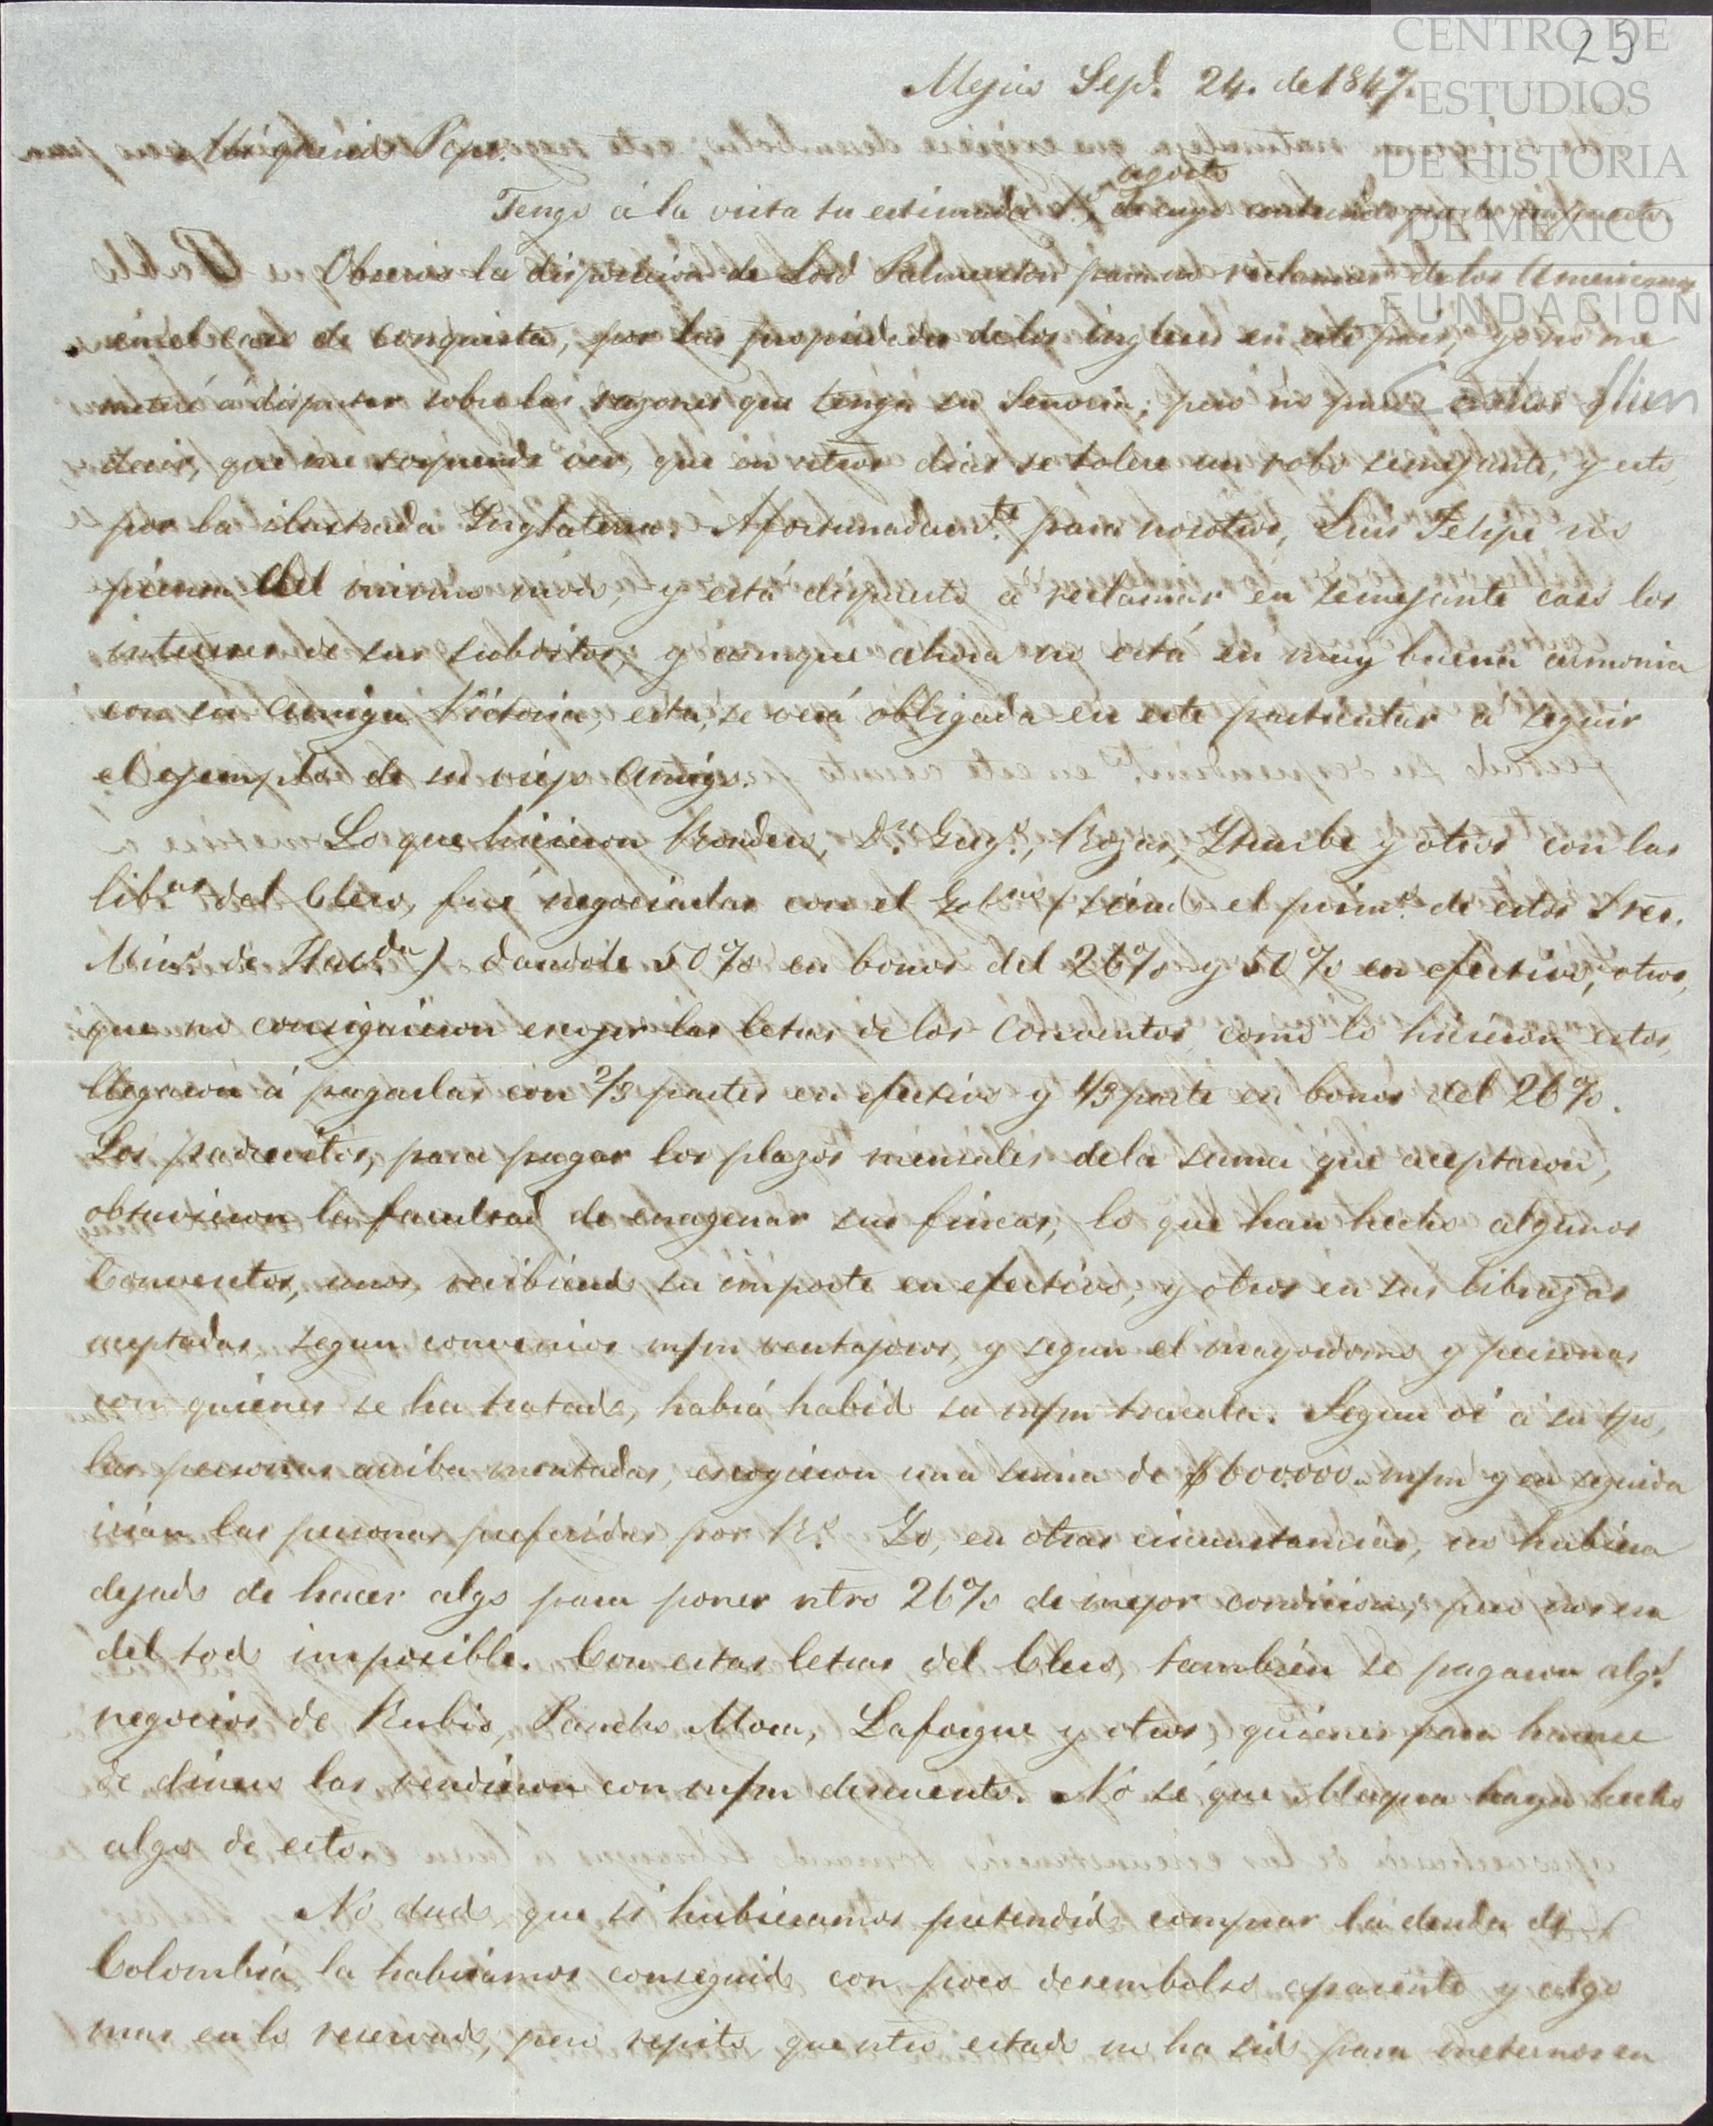 25
CENTRO DE
ESTUDIOS
DE HISTORIA
DE MÉXICO
FUNDACIÓN
Carlos Slim
Mejico Sep.e 24. de 1847.
Mi querido Pepe.
Tengo á la vista tu estimada 1.o agosto de cuyo contenido quedo impuesto.
Observo la disposicion de Lord Palmerston para no reclamar de los Americanos
en el caso de conquista, por las propiedades de los ingleses en este pais, yo no me
meteré á disputar sobre las razones que tenga su Señoria; pero no puedo menos que
decir, que me sorprende ver, que en estos dias se tolere un robo semejante, y esto
por la ilustrada Inglaterra. Afortunadam.te para nosotros, Luis Felipe no
piensa del mismo modo, y está dispuesto á reclamar en semejante caso los
intereses de sus subditos; y aunque ahora no está en muy buena armonia
con su amiga Victoria, esta, se verá obligada en este particular á seguir
el ejemplo de su viejo amigo.
Lo que hicieron Rondero, D.n Greg.o, Rojas, Yturbe y otros con las
lib.zas del Clero, fué negociarlas con el Gob.no (siendo el prim.o de estos Sres.
Min.o de Hac.da) dandole 50% en bonos del 26% y 50% en efectivo, otros,
que no consiguieron escoger las letras de los Conventos como lo hicieron estos,
llegaron á pagarlas con 2/3 partes en efectivo y 1/3 parte en bonos del 26%.
Los padrecitos, para pagar los plazos mensales de la suma que aceptaron,
obtuvieron la facultad de enagenar sus fincas, lo que han hecho algunos
Conventos, unos recibiendo su importe en efectivo, y otros en sus libranzas
aceptadas, segun convenios m/m ventajosos, y segun el mayordomo y personas
con quienes se ha tratado, habrá habido su m/m tracala. Segun oí á su tpo,
las personas arriba mentadas, escogieron una suma de $600.000 m/m y en seguida
irian las personas preferidas por R.o Yo, en otras circunstancias, no hubiera
dejado de hacer algo para poner ntro 26% de mejor condicion; pero nos era
del todo imposible. Con estas letras del Clero, tambien se pagaron alg.s
negocios de Rubio, Pancho Mora, Laforgue y otros, quienes para hacerse
de dinero las vendieron con m/m descuento. No sé que Blaquea haya hecho
algo de esto.
No dudo que si hubieramos pretendido comprar la deuda de
Colombia la habriamos conseguido con poco desembolso aparente y algo
mas en lo reservado, pero repito que ntro estado no ha sido para meternos en